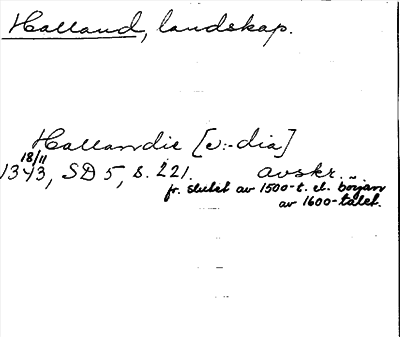 Halland, landskap.
Hallandie [v:-dia]
18/11
1343, SD 5, s. 221. avskr.
fr. slutet av 1500-t. el. början
av 1600-talet.